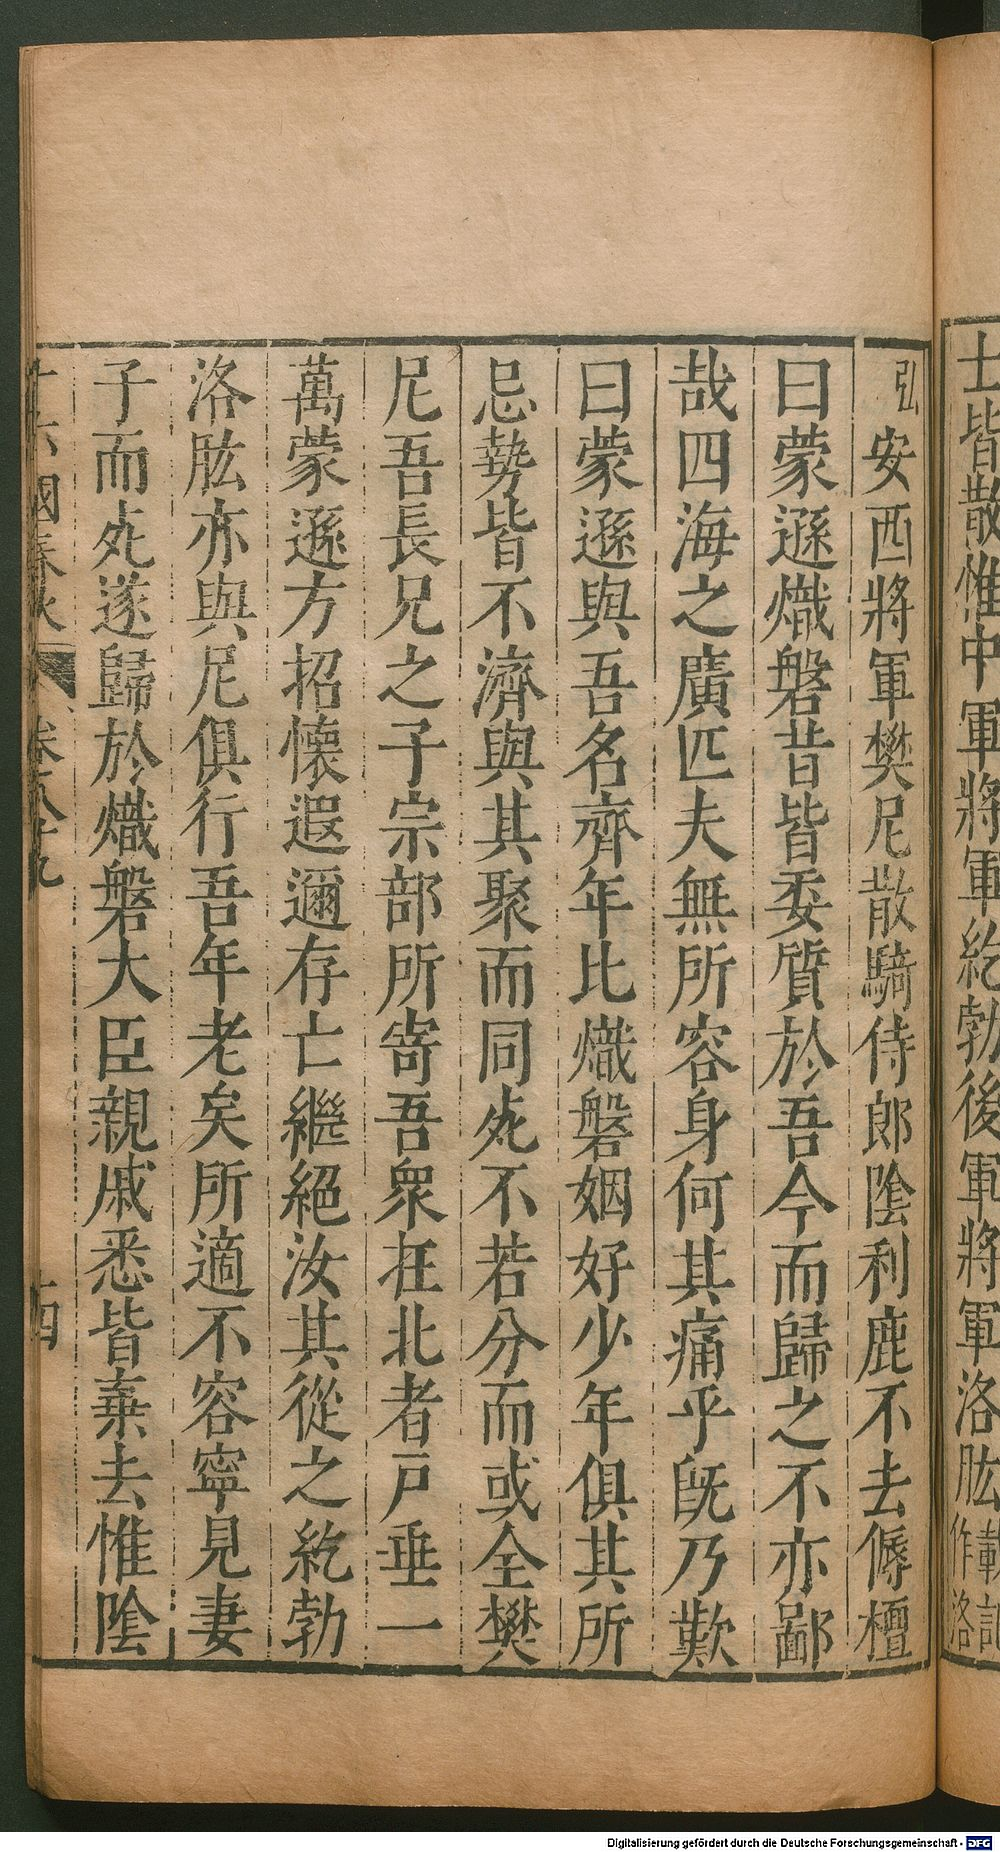 士皆散惟中軍將軍紇勃後軍將軍洛肱載記作洛
弘安西將軍樊尼散騎侍郎陰利鹿不去傉檀
曰蒙遜熾磐昔皆委質於吾今而歸之不亦鄙
哉四海之廣匹夫無所容身何其痛乎旣乃歎
曰蒙遜與吾名齊年比熾磐姻好少年俱其所
忌勢皆不濟與其聚而同死不若分而或全樊
尼吾長兄之子宗部所寄吾衆在北者戸垂一
萬蒙遜方招懷遐邇存亡繼絕汝其從之紇勃
洛肱亦與尼俱行吾年老矣所適不容寧見妻
子而死遂歸於熾磐大臣親戚悉皆棄去惟陰
十六國春秋 卷八十九 四
Digitalisierung gefördert durch die Deutsche Forschungsgemeinschaft - DFG